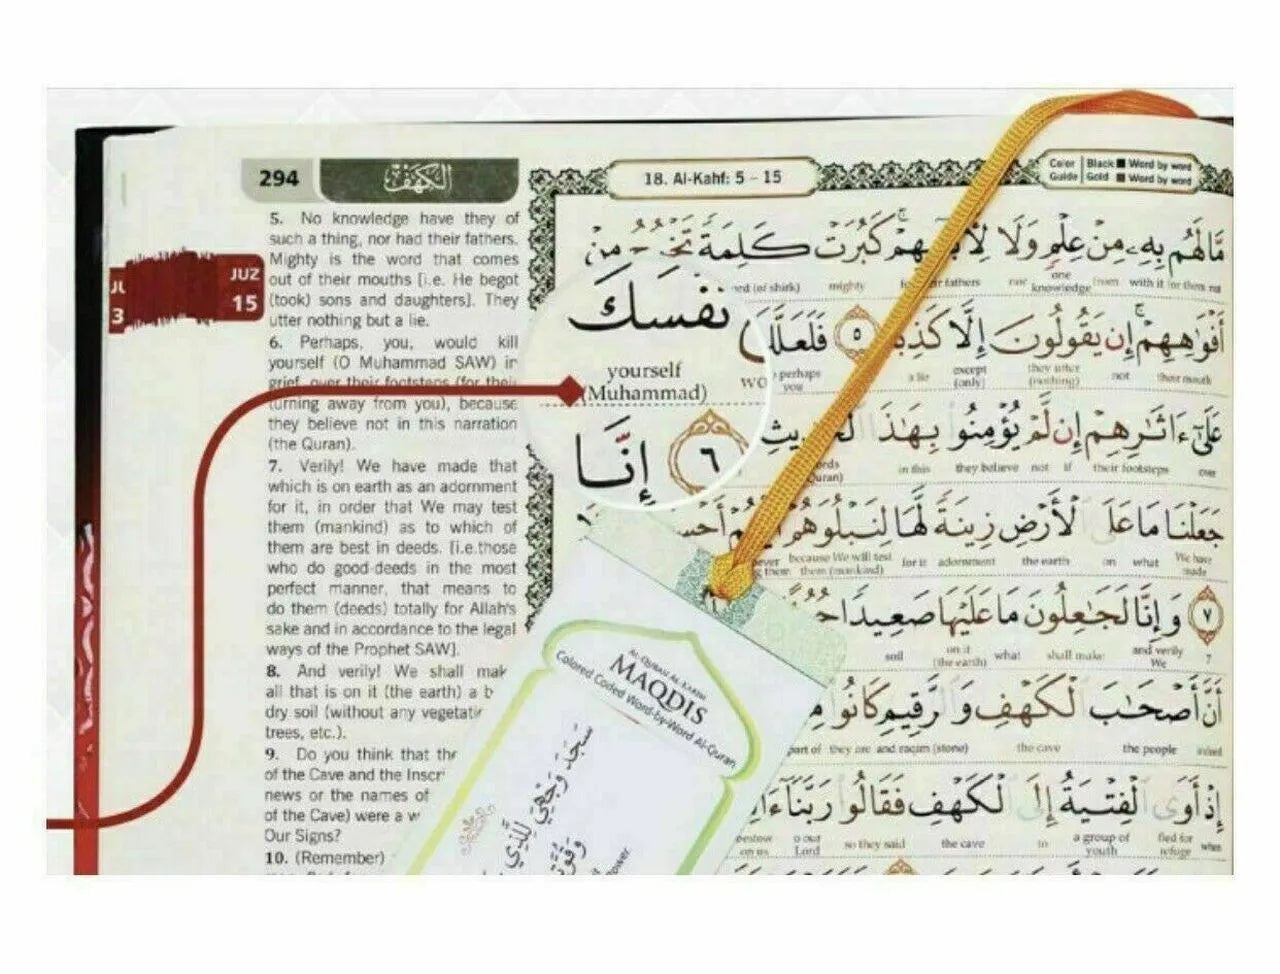 294
الكهف
5. No knowledge have they of
such a thing, nor had their fathers.
Mighty is the word that comes
out of their mouths [i.e. He begot
(took) sons and daughters]. They
utter nothing but a lie.
6. Perhaps, you, would kill
yourself (O Muhammad SAW) in
grief, over their footsteps (for their
turning away from you), because
they believe not in this narration
(the Quran).
7. Verily! We have made that
which is on earth as an adornment
for it, in order that We may test
them (mankind) as to which of
them are best in deeds. [i.e.those
who do good deeds in the most
perfect manner, that means to
do them (deeds) totally for Allah's
sake and in accordance to the legal
ways of the Prophet SAW].
8. And verily! We shall mak
all that is on it (the earth) a b
dry soil (without any vegetatir
trees, etc.).
9. Do you think that the
of the Cave and the Inscr
news or the names of
of the Cave) were a w
Our Signs?
10. (Remember)
JUZ
15
3
18. Al-Kahf: 5 – 15
Color Guide
Black Word by word
Gold Word by word
مَّا لَهُم بِهِۦ مِنْ عِلْمٍ وَلَا كَبُرَتْ كَلِمَةً تَخْرُجُ مِنْ
mighty fathers nor one knowledge from with it
أَفْوَٰهِهِمْ ۚ إِن يَقُولُونَ إِلَّا كَذِبًا ٥ فَلَعَلَّكَ
perhaps you a lie except (only) they utter (nothing) not their mouth
نَفْسَكَ
yourself
(Muhammad)
عَلَىٰٓ ءَاثَٰرِهِمْ إِن لَّمْ يُؤْمِنُوا بِهَٰذَا الْحَدِيثِ ٦ إِنَّا
in this they believe not if their footsteps over
جَعَلْنَا مَا عَلَى الْأَرْضِ زِينَةً لَّهَا لِنَبْلُوَهُمْ
because We will test them (mankind) for it adornment the earth on what We have made
٧ وَإِنَّا لَجَٰعِلُونَ مَا عَلَيْهَا صَعِيدًا
soil on it (the earth) what shall make and verily We 7
أَنَّ أَصْحَٰبَ الْكَهْفِ وَالرَّقِيمِ كَانُوا
part of they are and raqim (stone) the cave the people
إِذْ أَوَى الْفِتْيَةُ إِلَى الْكَهْفِ فَقَالُوا رَبَّنَا
bestow on us o our Lord so they said the cave to a group of youth fled for refuge when
AL-QURAN AL-KARIM
MAQDIS
Colored Coded Word-by-Word Al-Quran
سَجَدَ وَجْهِيَ لِلَّذِي